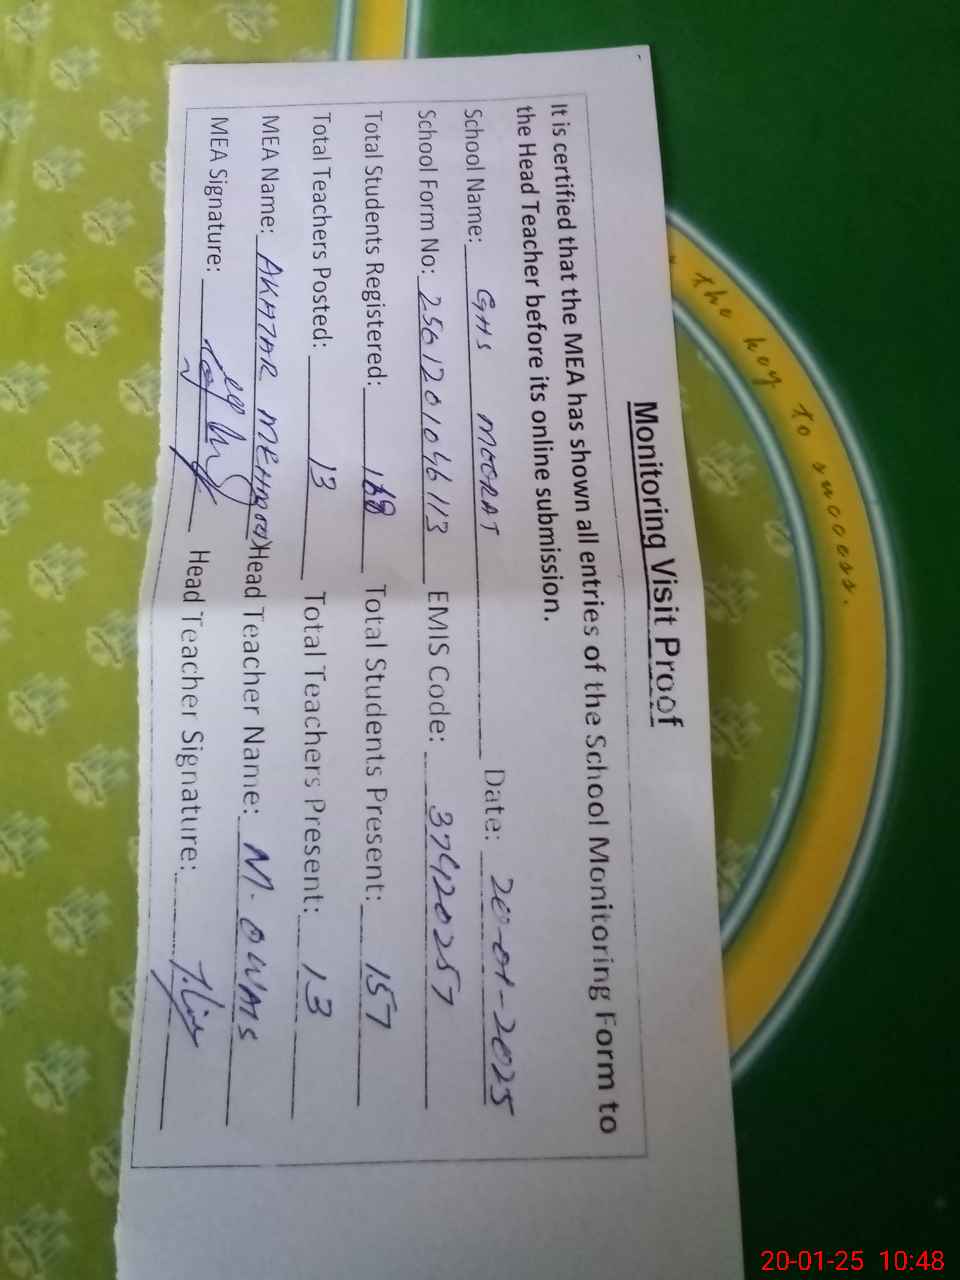 Monitoring Visit Proof
It is certified that the MEA has shown all entries of the School Monitoring Form to
the Head Teacher before its online submission.
School Name: GHS MOORAT Date: 20-01-2025
School Form No: EMIS Code: 37420257
Total Students Registered: Total Students Present: 157
Total Teachers Posted: 13 Total Teachers Present: 13
MEA Name: AKHTAR MEHMOOD Head Teacher Name: M. OWAIS
MEA Signature: Head Teacher Signature:
the key to success.
20-01-25 10:48